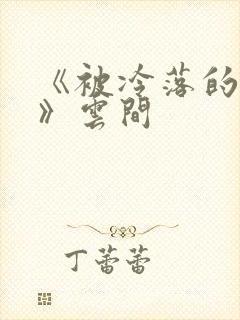 《被冷落的
》雲間
丁蕾蕾